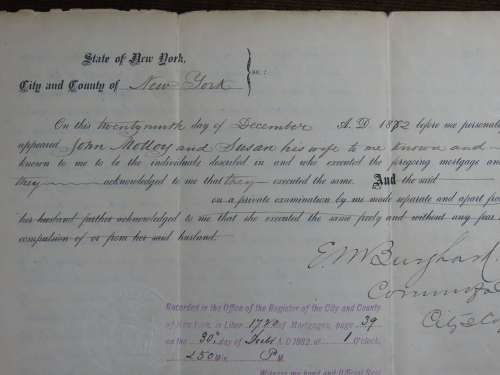 State of New York,
City and County of New York } ss.:
On this twentyninth day of December A. D. 1882 before me personal
appeared John Molloy and Susan his wife to me known and
known to me to be the individuals described in and who executed the foregoing mortgage and
they acknowledged to me that they executed the same. And the said
on a private examination by me made separate and apart fro
her husband further acknowledged to me that she executed the same freely and without any fear
compulsion of or from her said husband.
E. M. Burghard
City & Co
Recorded in the Office of the Register of the City and County
of New York, in Liber of Mortgages, page 39
on the 30 day of A. D. 1882, at 1 O'clock,
Witness my hand and Official Seal